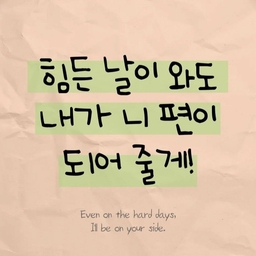 힘든 날이 와도
내가 니 편이
되어 줄게!
Even on the hard days,
I'll be on your side.